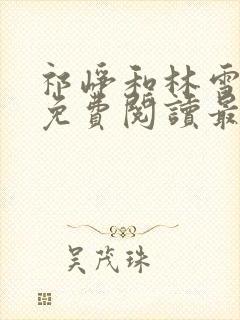 祁崢和林雪
免費閱讀最
吴茂珠